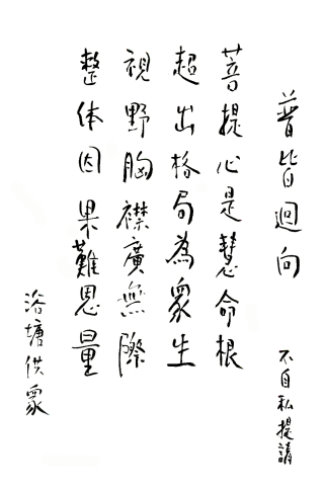 普皆迴向
不自私提請
菩提心是慧命根
超出格局為眾生
視野胸襟廣無際
整体因果難思量
浴塘供眾